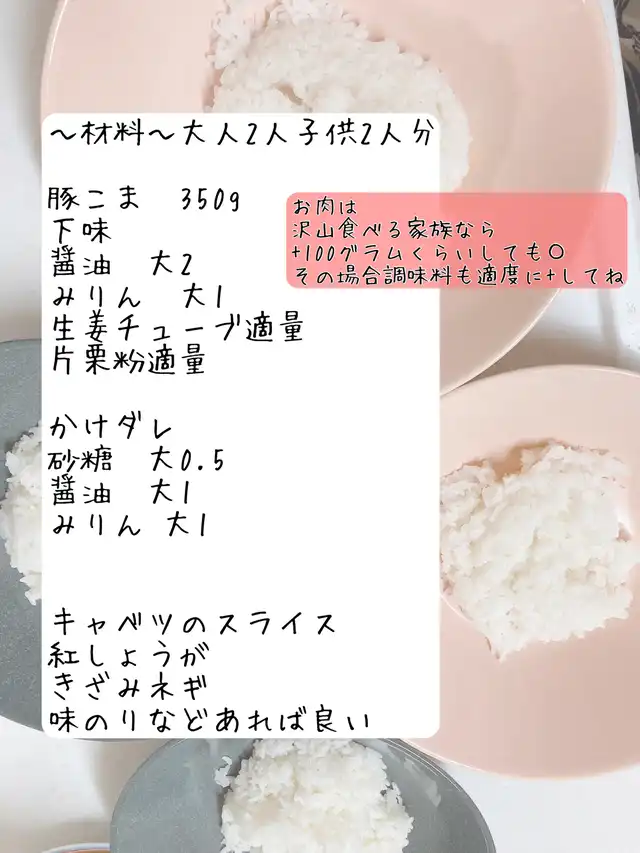 ～材料～大人2人子供2人分
豚こま　350g
下味
醤油　大2
みりん　大1
生姜チューブ適量
片栗粉適量
かけダレ
砂糖　大0.5
醤油　大1
みりん　大1
キャベツのスライス
紅しょうが
きざみネギ
味のりなどあれば良い
お肉は
沢山食べる家族なら
+100グラムくらいしても〇
その場合調味料も適度に+してね